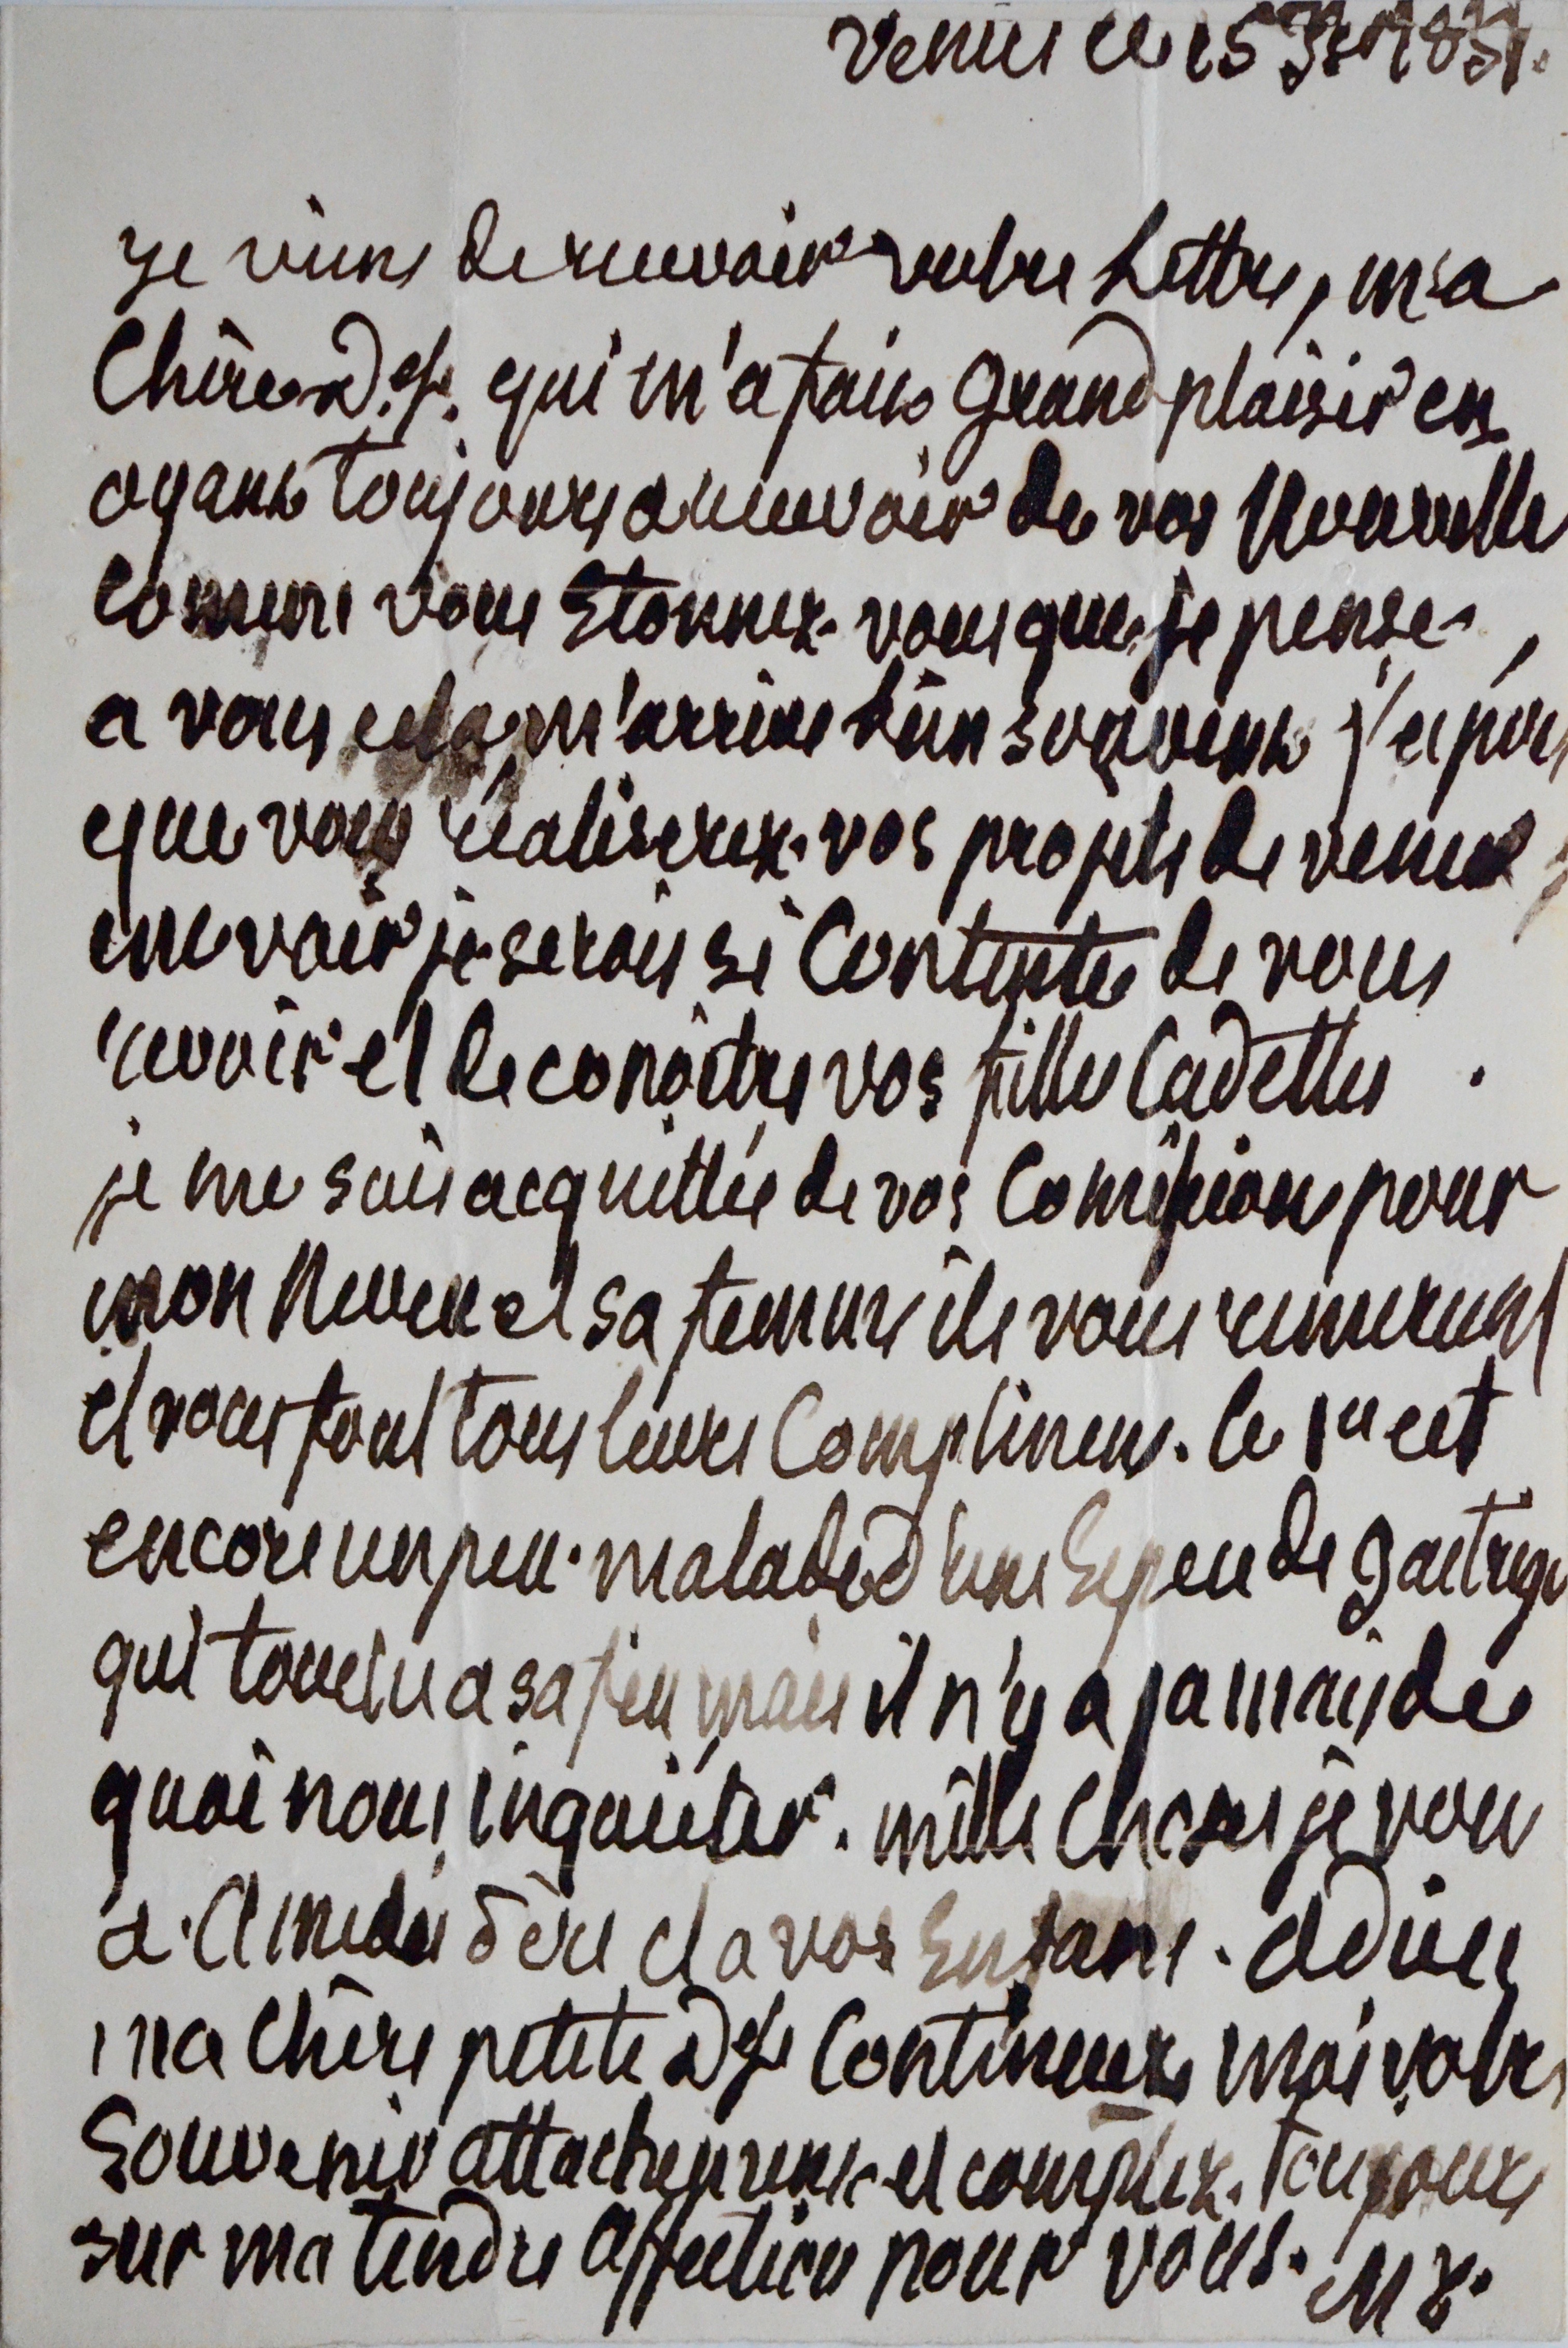 Venise ce 15 1851.
je viens de recevoir votre Lettre, ma
Chère Def. qui m'a fait Grand plaisir en
ayant toujours a recevoir de vos Nouvelle
comment vous Etonnez-vous que je pense
a vous cela m'arrive bien souvent j'espère
que vous réaliserez vos projets de venir
me voir je serois si Contente de vous
revoir et de conoître vos filles Cadettes
je me suis acquittée de vos Comission pour
mon Neveu et sa femme ils vous remercient
et vous font tous leurs Complimens. le 1er est
encore un peu malade d'une de gastrique
qui touche a sa fin mais il n'y a jamais de
quoi nous inquiéter. mille Choses je vous
a Amedée et a vos Enfans. adieu
ma Chère petite Def Continuez moi votre
Souvenir attachement et comptez toujours
sur ma tendre Affection pour vous.